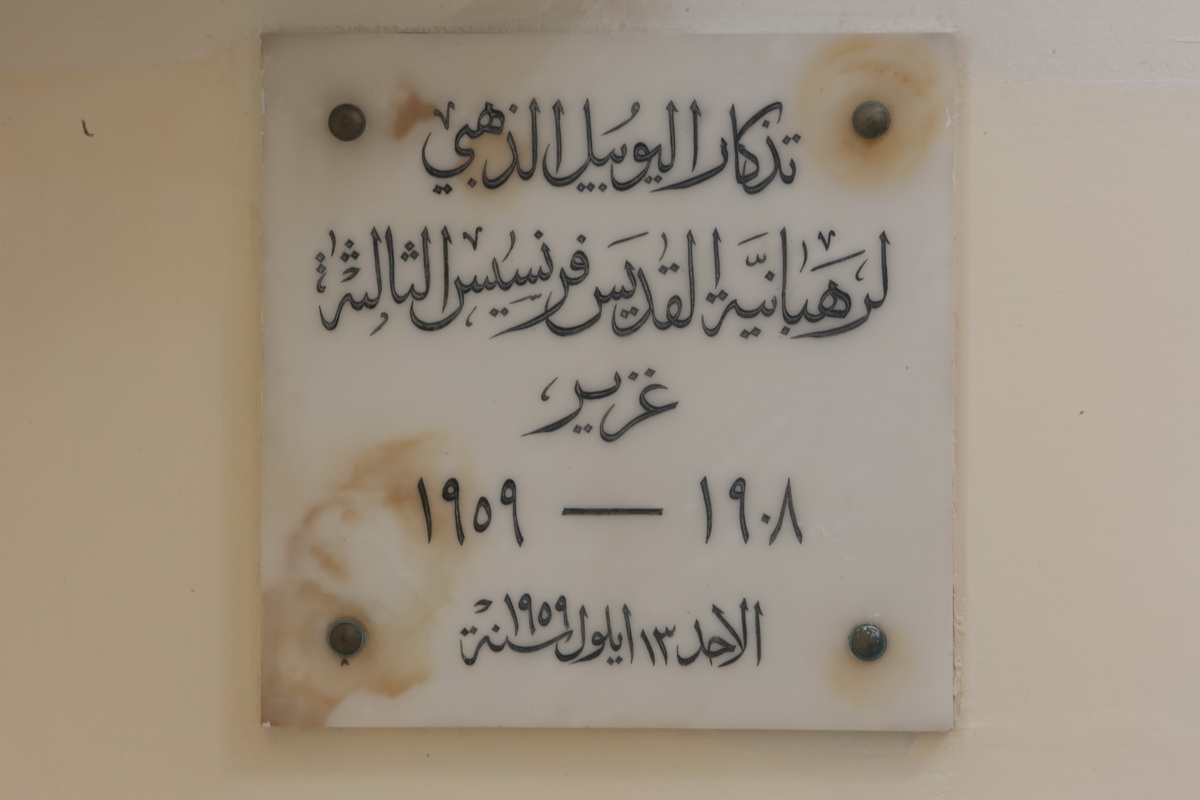 تذكار اليوبيل الذهبي
لرهبانية القديس فرنسيس الثالثة
غزير
١٩٠٨ — ١٩٥٩
الاحد ١٣ ايلول سنة ١٩٥٩